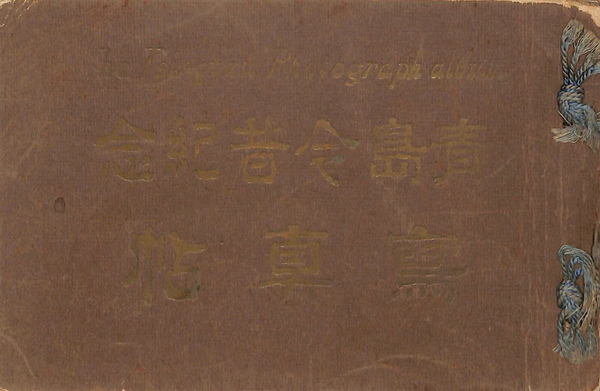 The Photograph album
青島今昔紀念
寫真帖